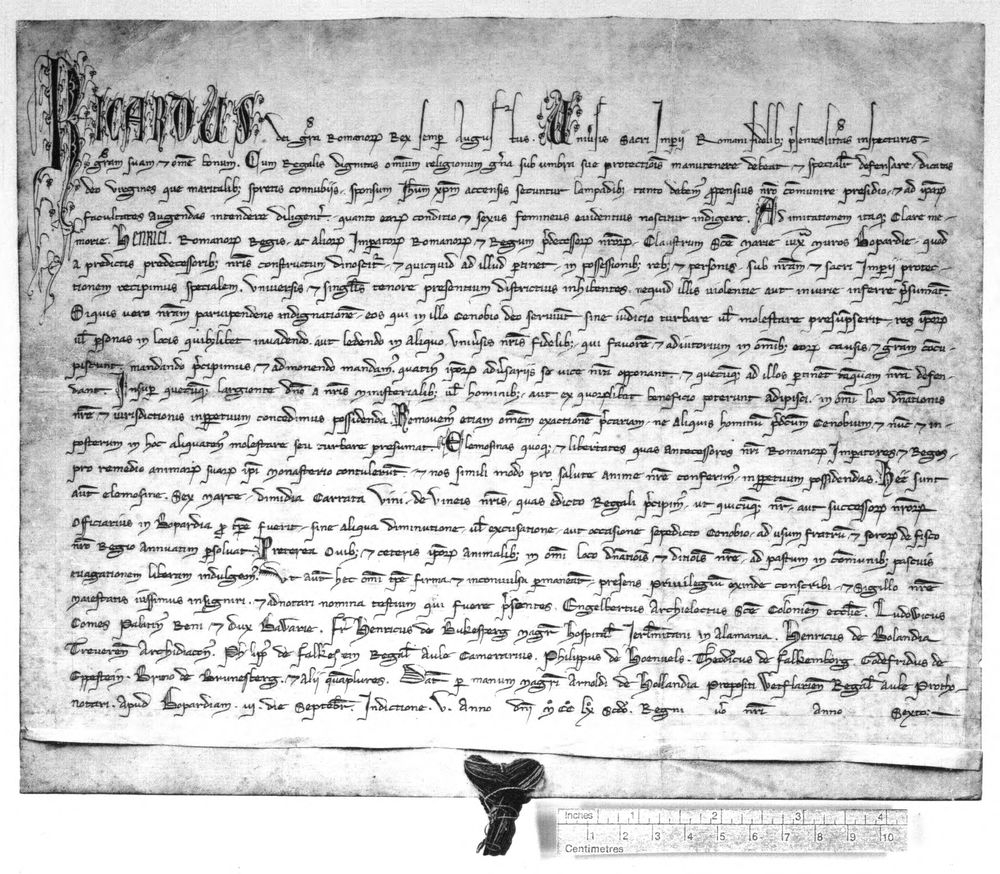 RICARDUS dei gra Romanorꝝ Rex semper Augustus. Universis Sacri Imperii Romani fidelib; psentes litteras inspecturis
gram suam et omne bonum. Cum Regalis dignitas omnium religionum gna sub umbra sue protectionis manutenere debeat et specialit defensare, dicatas
deo virgines que maritalib; spretis connubiis, sponsum Jhum xpm accensis secuntur lampadib; tanto debem ppensius nro comunire presidio, et ad ipaꝝ
facultates augendas intendere diligent, quanto eaꝝ conditio et sexus femineus evidentius noscitur indigere. Ad imitationem itaq; Clare me-
morie. HENRICI. Romanorꝝ Regis, ac alioꝝ Impatoꝝ Romanoꝝ et Regum pdecessoꝝ nroꝝ, Claustrum Sce Marie iuxa muros Bopardie, quod
a predictis predecessorib; nris constructum dinoscitr, et quicquid ad illud ptinet, in possessionib; reb; et personis, sub nram et sacri Imperii protec-
tionem recipimus specialem. Universis et singlis tenore presentium districtius inhibentes, nequid illis violentie aut iniurie inferre psumat.
Siquis vero nram parvipendens indignatione, eos qui in illo Cenobio deo serviunt sine iudicio turbare vl molestare presupserit, res ipoꝝ
vl psonas in locis quib;libet invadendo, aut ledendo in aliquo, Univsis nris fidelib; qui favore et adiutorium in omnib; eoꝝ causis et gram concu-
piscunt, mandando pcipimus et admonendo mandam, quatin ipoꝝ advsariis se vice nra opponant, et quecuq; ad illos ptinet taquam nra defen-
dant. Insup quecuq; largiente dno a nris ministerialib; vl hominib; aut ex quoꝝlibet beneficio poterunt adipisci, in omi loco dnationis
nre et iurisdictionis inppetuum concedimus possidenda. Removem etiam omem exactione pcariam, ne aliquis hominu pdcum Cenobium et nuc et in-
posterum in hoc aliquaten molestare seu turbare presumat. Elemosinas quoq; et libertates quas antecessores nri Romanoꝝ Impatores et Reges,
pro remedio animaꝝ suaꝝ ipi monasterio contulerut, et nos simili modo pro salute anime nre conferim, inppetuum possidendas. Hec sunt
aut elemosine. Sex marce, dimidia Carrata vini, de vineis nris, quas edicto Regali pcipim, ut quicuq; nr, aut successoꝝ nroꝝ
Officiarius in Bopardia p tpe fuerit, sine aliqua diminutione, vl excusatione, aut occasione sepedicto Cenobio, ad usum fratru et soroꝝ de fisco
nro Regio Annuatim psolvat. Preterea Ovib; et ceteris ipoꝝ animalib; in omi loco dnatiois et ditiois nre, ad pastum in comunib; pascuis
evagationem liberam indulgem. Ut aut hec omi tpe firma et inconvulsa pmaneat, presens privilegiu exinde conscribi, et Sigillo nre
maiestatis iussimus insigniri, et adnotari nomina testium qui fuere psentes. Engelbertus Archielectus Sce Colonien ecclie. Ludowicus
Comes Palatin Reni et Dux Bawarie. Fr Henricus de Bukesberg magr Hospital Jerlimitani in Alamania. Henricus de Bolandia
Treveren Archidiacon. Philipp de Falkestein Regal Aule Camerarius. Philippus de Hoenvels. Theodicus de Falkemborg. Godefridus de
Eppestein. Bruno de Brunesberg. et alii quaplures. Dat p manum magri Arnoldi de Hollandia Prepositi Wetflarien Regal Aule Protho-
notari. Apud Bopardiam. iii. die Septembr. Indictione. v. Anno dni m cc lx Scdo. Regni vo nri anno Sexto.
Inches 1 2 3 4
1 2 3 4 5 6 7 8 9 10
Centimetres